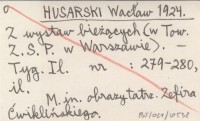 HUSARSKI Wacław 1924.
Z wystaw bieżących (w Tow.
Z.S.P. w Warszawie). —
Tyg. Il. nr : 279-280,
il.
M.in. obrazy tatr. Zefira
Ćwiklińskiego.